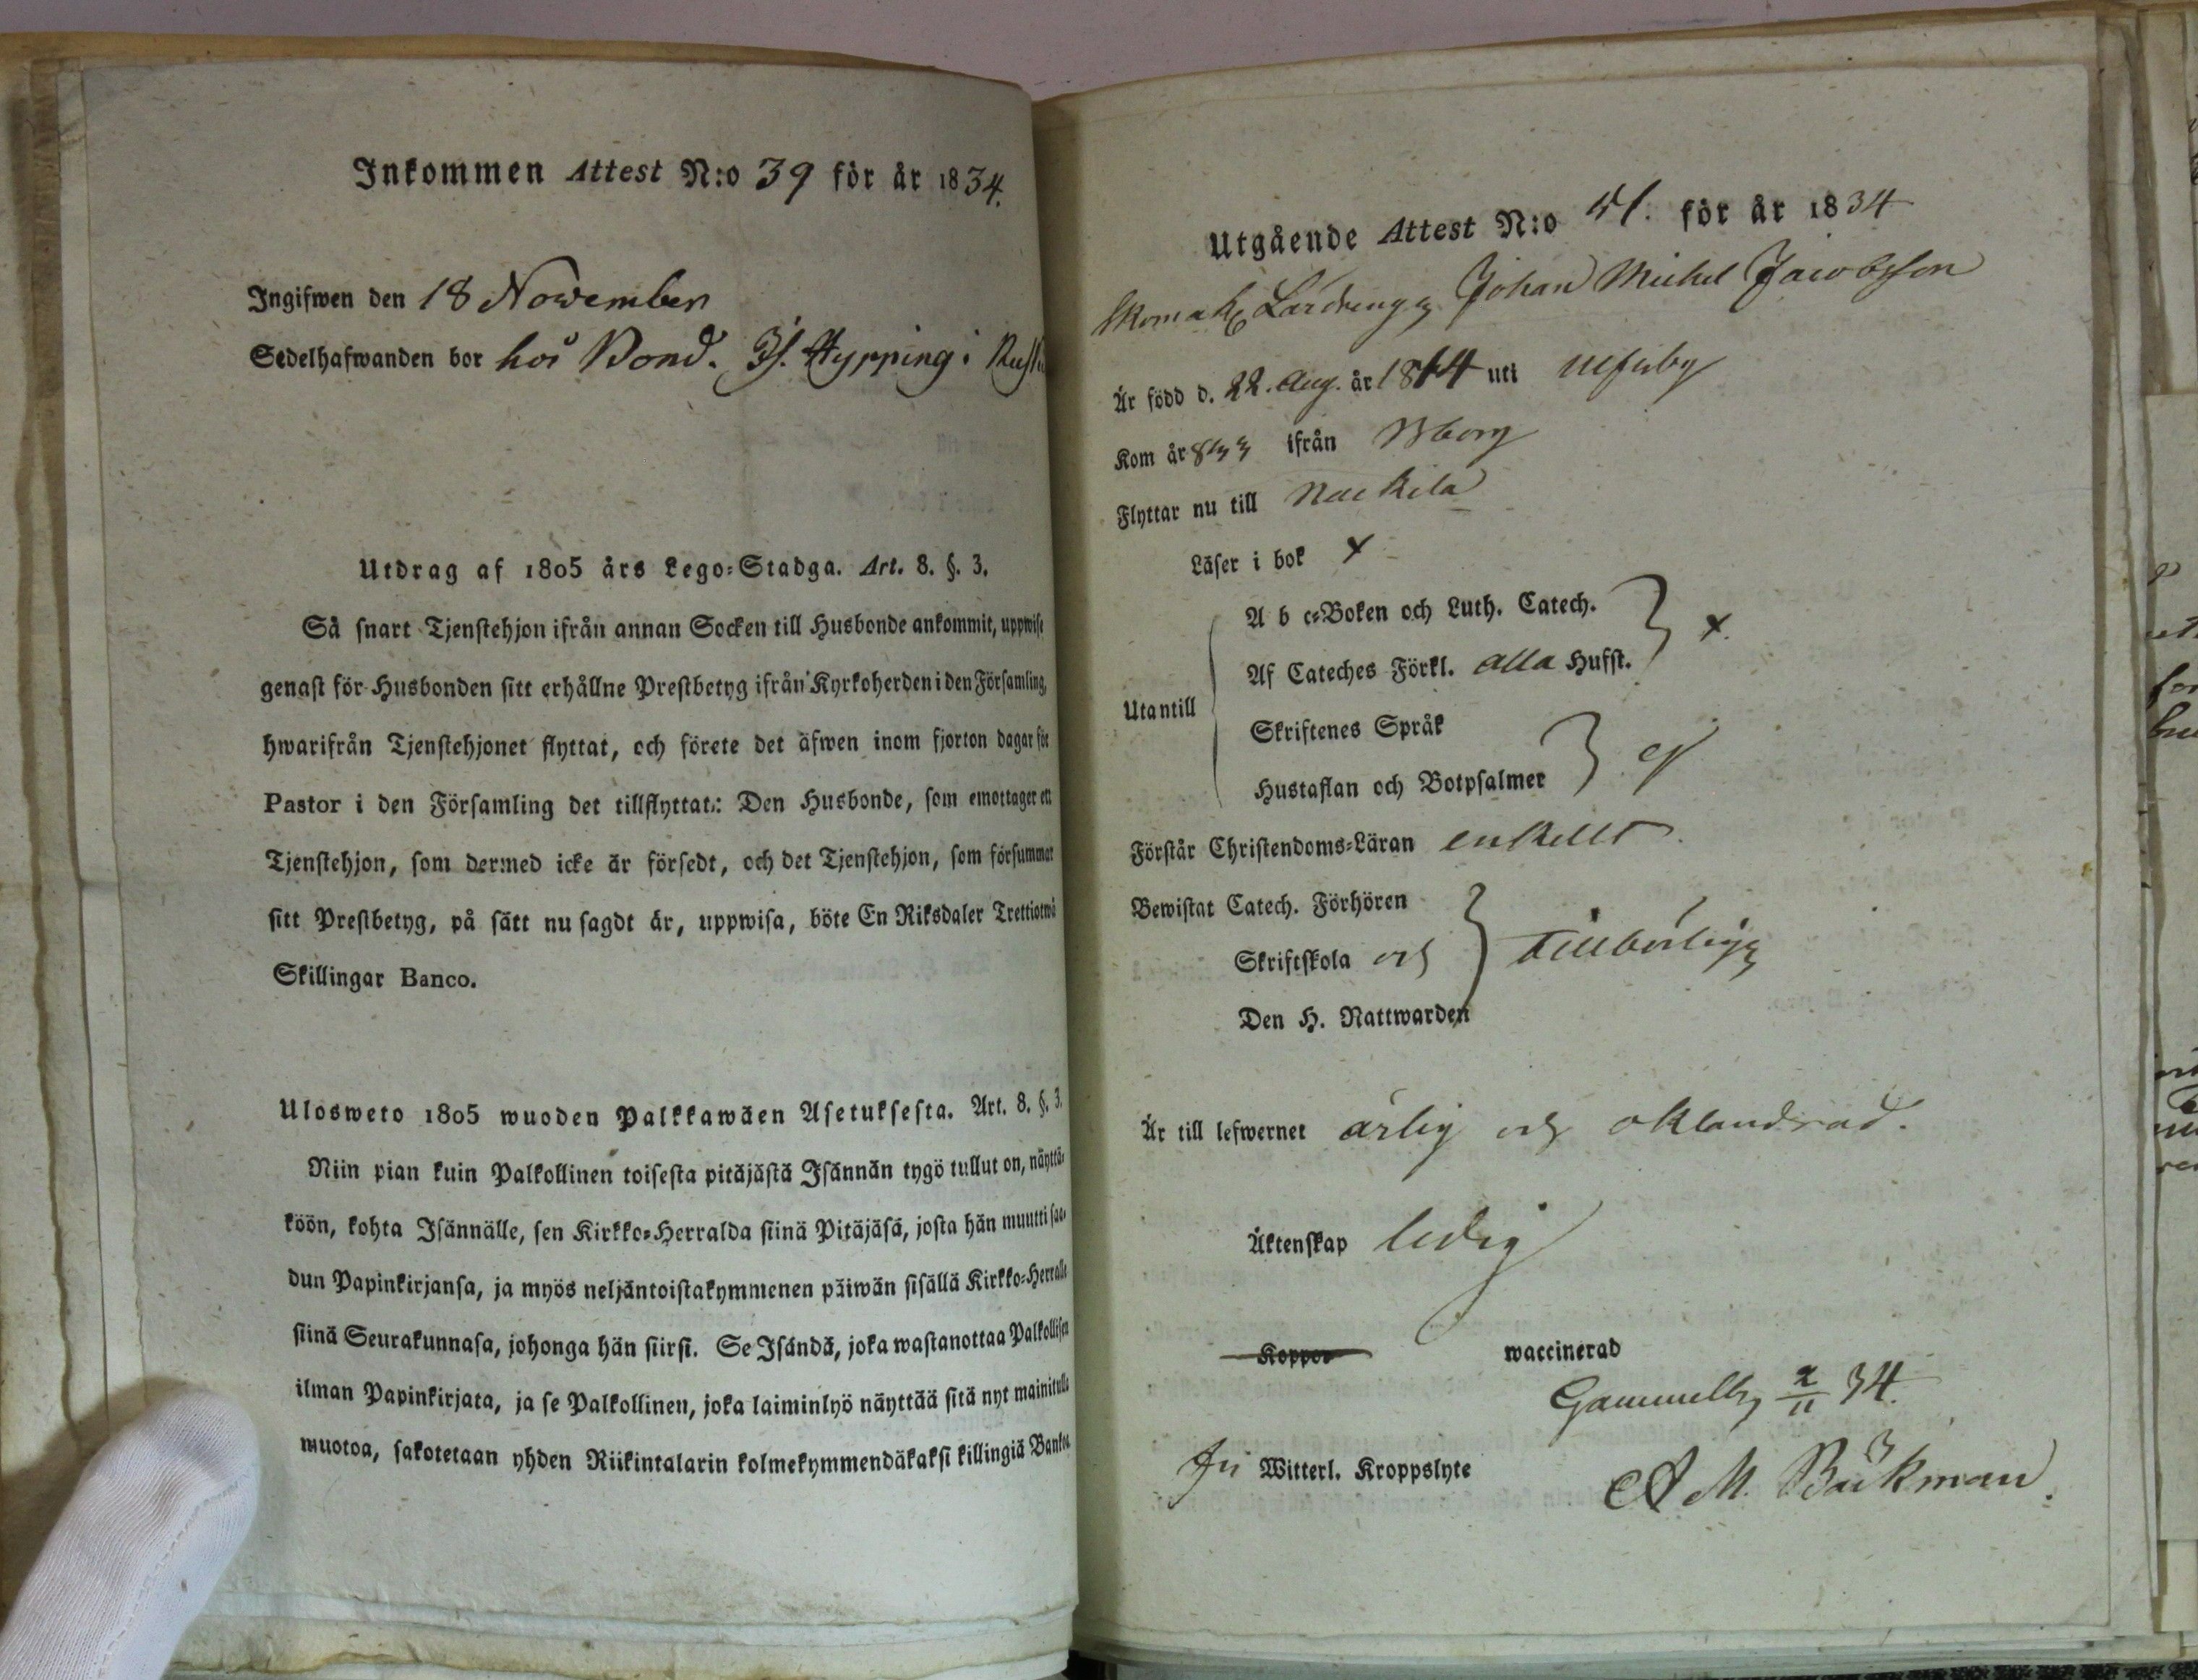 Inkommen Attest N:o 39 för år 1834.
Ingifwen den 18 November
Sedelhafwanden bor hos Bond. Is. Hypping i
Utdrag af 1805 års Lego-Stadga. Art. 8. §. 3.
Så snart Tjenstehjon ifrån annan Socken till Husbonde ankommit, uppwise
genast för Husbonden sitt erhållne Prestbetyg ifrån Kyrkoherden i den Församling,
hwarifrån Tjenstehjonet flyttat, och förete det äfwen inom fjorton dagar för
Pastor i den Församling det tillflyttat: Den Husbonde, som emottager ett
Tjenstehjon, som dermed icke är försedt, och det Tjenstehjon, som försummar
sitt Prestbetyg, på sätt nu sagdt är, uppwisa, böte En Riksdaler Trettiotwå
Skillingar Banco.
Ulosweto 1805 wuoden Palkkawäen Asetuksesta. Art. 8. §. 3.
Niin pian kuin Palkollinen toisesta pitäjästä Isännän tygö tullut on, näyttä-
köön, kohta Isännälle, sen Kirkko-Herralda siinä Pitäjäsä, josta hän muutti saa-
dun Papinkirjansa, ja myös neljäntoistakymmenen päiwän sisällä Kirkko-Herralle
siinä Seurakunnasa, johonga hän siirsi. Se Isändä, joka wastanottaa Palkollisen
ilman Papinkirjata, ja se Palkollinen, joka laiminlyö näyttää sitä nyt mainitulla
muotoa, sakotetaan yhden Riikintalarin kolmekymmendäkaksi killingiä Bankoa
Utgående Attest N:o 51. för år 1834
Skomak Lärdreng Johan Michel Jacobsson
Är född d. 22. Aug. år 1814 uti Ulfsby
Kom år 833 ifrån Bborg
Flyttar nu till Nackila
Läser i bok x
A b c-Boken och Luth. Catech.
Af Cateches Förkl. alla Hufst. x.
Utantill
Skriftenes Språk
Hustaflan och Botpsalmer ej
Förstår Christendoms-Läran enkelt.
Bewistat Catech. Förhören
Skriftskola och tillbörlig
Den H. Nattwarden
Är till lefwernet ärlig och oklandrad.
Äktenskap ledig
Koppor waccinerad
Gammelby 2/11 34.
Fri Witterl. Kroppslyte
A M. Bäckman.